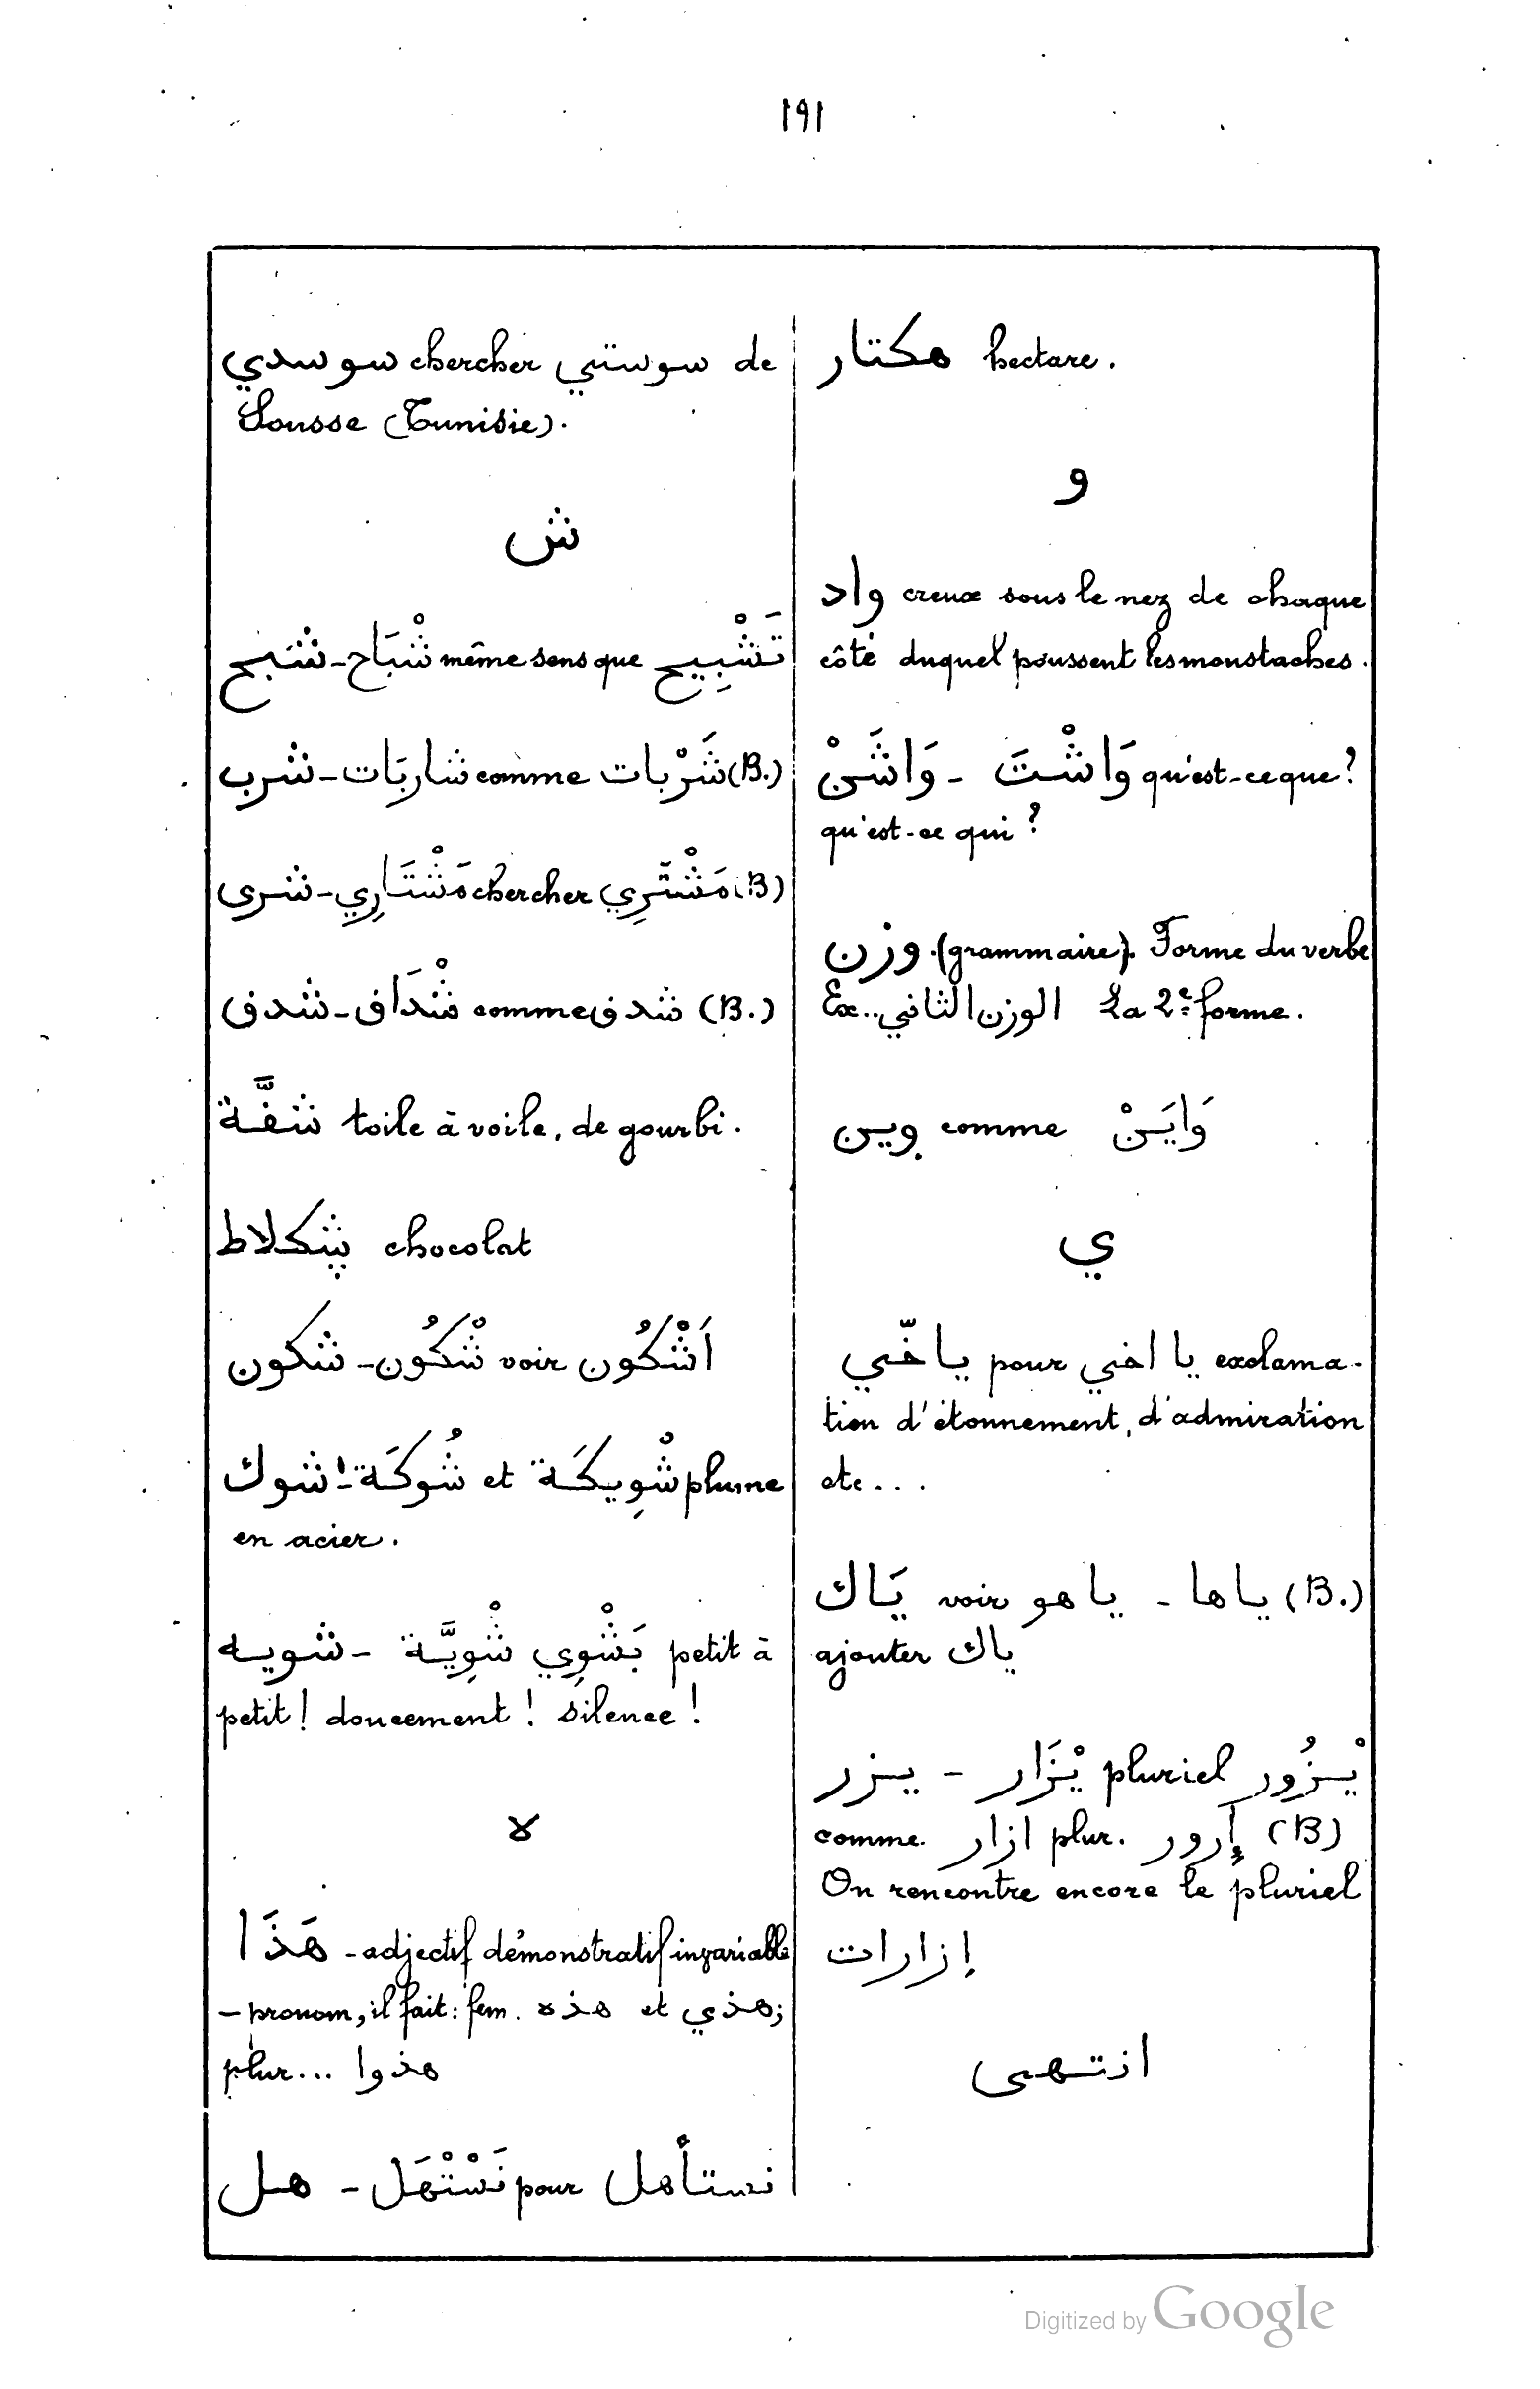 ١٩١
سوسدي chercher سوستي de
Sousse (Tunisie).
ش
شبح - شْبَاح même sens que تَشْبِيح
شرب - شاربَات comme شَرْبات (B.)
شرى - مَشْتَارِي chercher مَشْتَرِي (B)
شدف - شْدَاف comme شدف (B.)
شقَّة toile à voile, de gourbi.
شكلاط chocolat
شكون - شْكُون voir اَشْكُون
شوك - شُوكَة et شْوِيكَة plume
en acier.
شويه - شْوِيَّة بَشْوِي petit à
petit! doucement! silence!
ه
هَذَا - adjectif démonstratif invariable
- pronom, il fait: fem. هذه et هذي;
plur... هذوا
هل - نَسْتْهَل pour نستأهل
هكتار hectare.
و
واد creux sous le nez de chaque
côté duquel poussent les moustaches.
وَاشَنْ - وَاشْتَ qu'est-ce que?
qu'est-ce qui?
وزن. (grammaire). Forme du verbe
Ex.. الوزن الثاني La 2e forme.
وين comme وَايَنْ
ي
ياخّي pour يا اخي exclama-
tion d'étonnement, d'admiration
etc...
يَاك voir ياهو - ياها (B.)
ajouter ياك
يزر - يْزَار pluriel يْزُور
comme. ازار plur. إزور (B)
On rencontre encore le pluriel
إزارات
انتهى
Digitized by Google